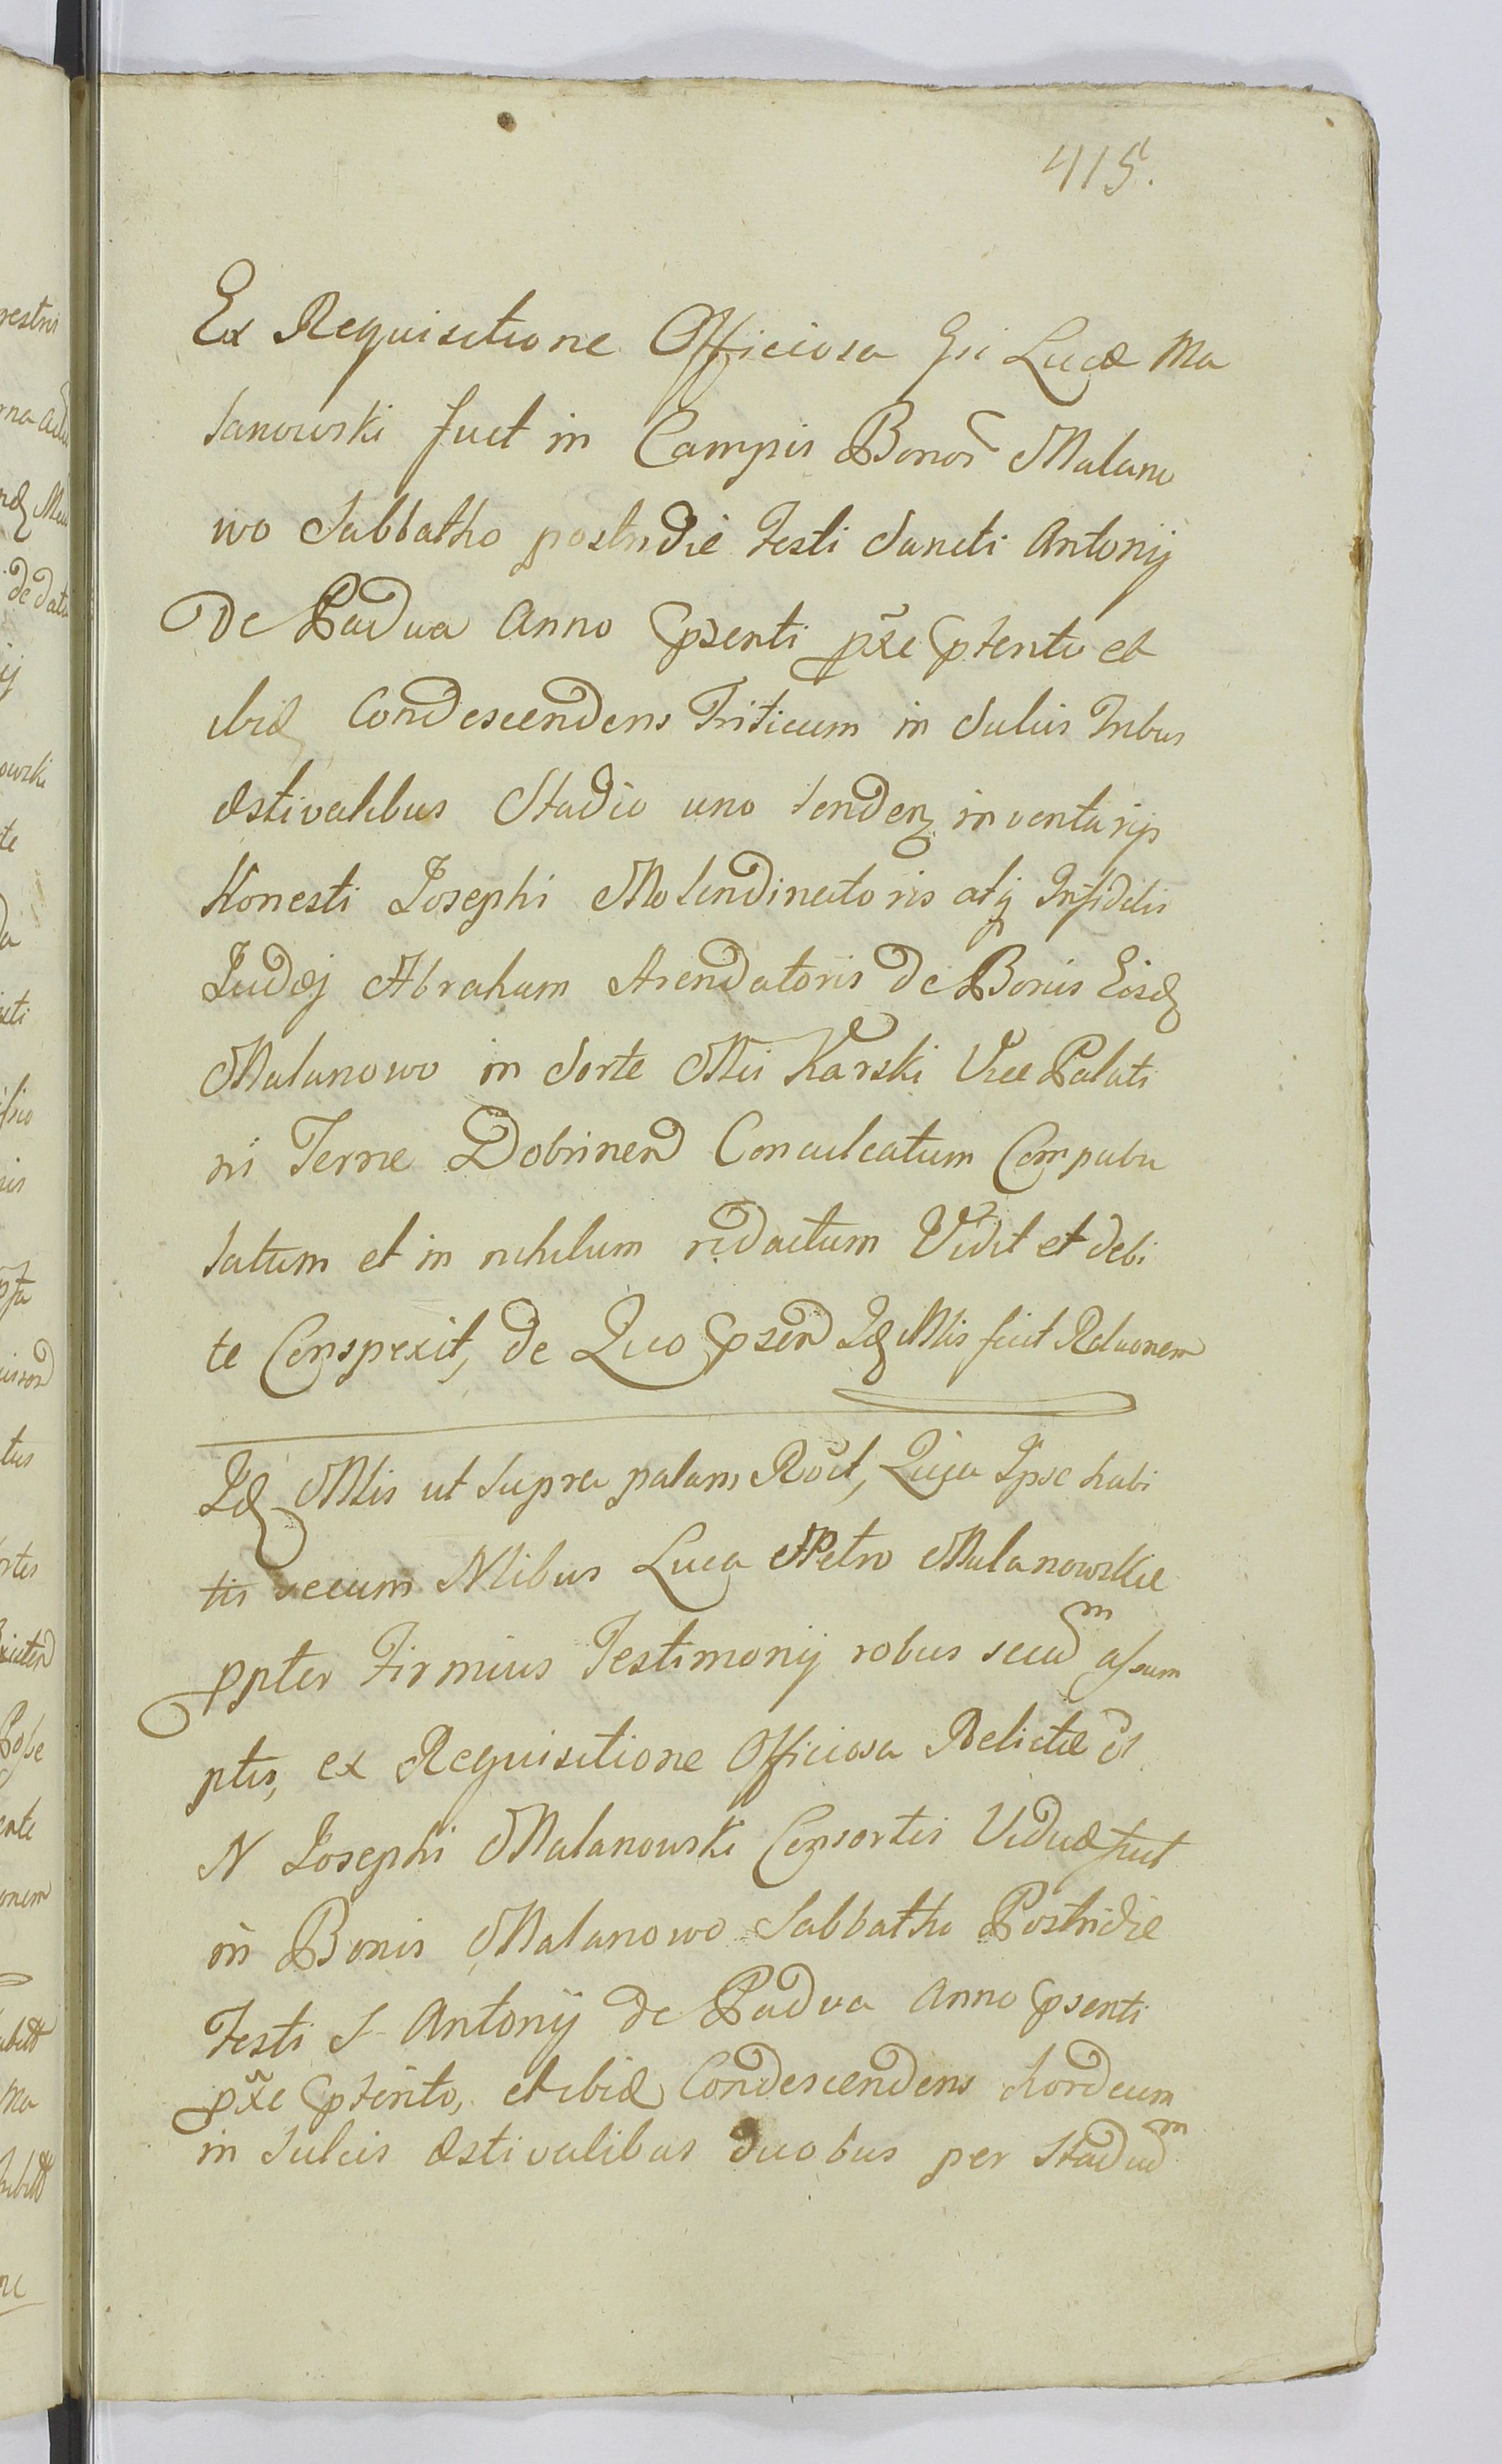 415.
Ex Requisitione Officiosa Gsi Lucæ Ma
lanowski fuit in Campis Bonor Malano
wo Sabbatho postridie Festi Sancti Antonij
De Padua Anno psenti pxe ptento et
ibid Condescendens Triticum in Sulcis Tribus
æstivalibus Stadio uno tenden inventarijs
Honesti Josephi Molendinatoris atq Infidelis
Judæj Abraham Arendatoris de Bonis Eisd
Malanowo in Sorte Mci Karski Vice Palati
ni Terræ Dobrinen Conculcatum Compabu
latum et in nihilum redactum Vidit et debi
te Conspexit, de Quo psen Id Mlis fecit Relaonem
Id Mlis ut supra palam Rocit, Quia Ipse habi
tis secum Nlibus Luca Petro Malanowskie
ppter Firmius Testimonij robur secum assum
ptis, ex Requisitione Officiosa Relictæ ol
N Josephi Malanowski Consortis Viduæ fuit
in Bonis Malanowo Sabbatho Postridie
Festi S. Antonij de Padua Anno psenti
pxe ptento, et ibid Condescendens hordeum
in Sulcis æstivalibus duobus per Stadium